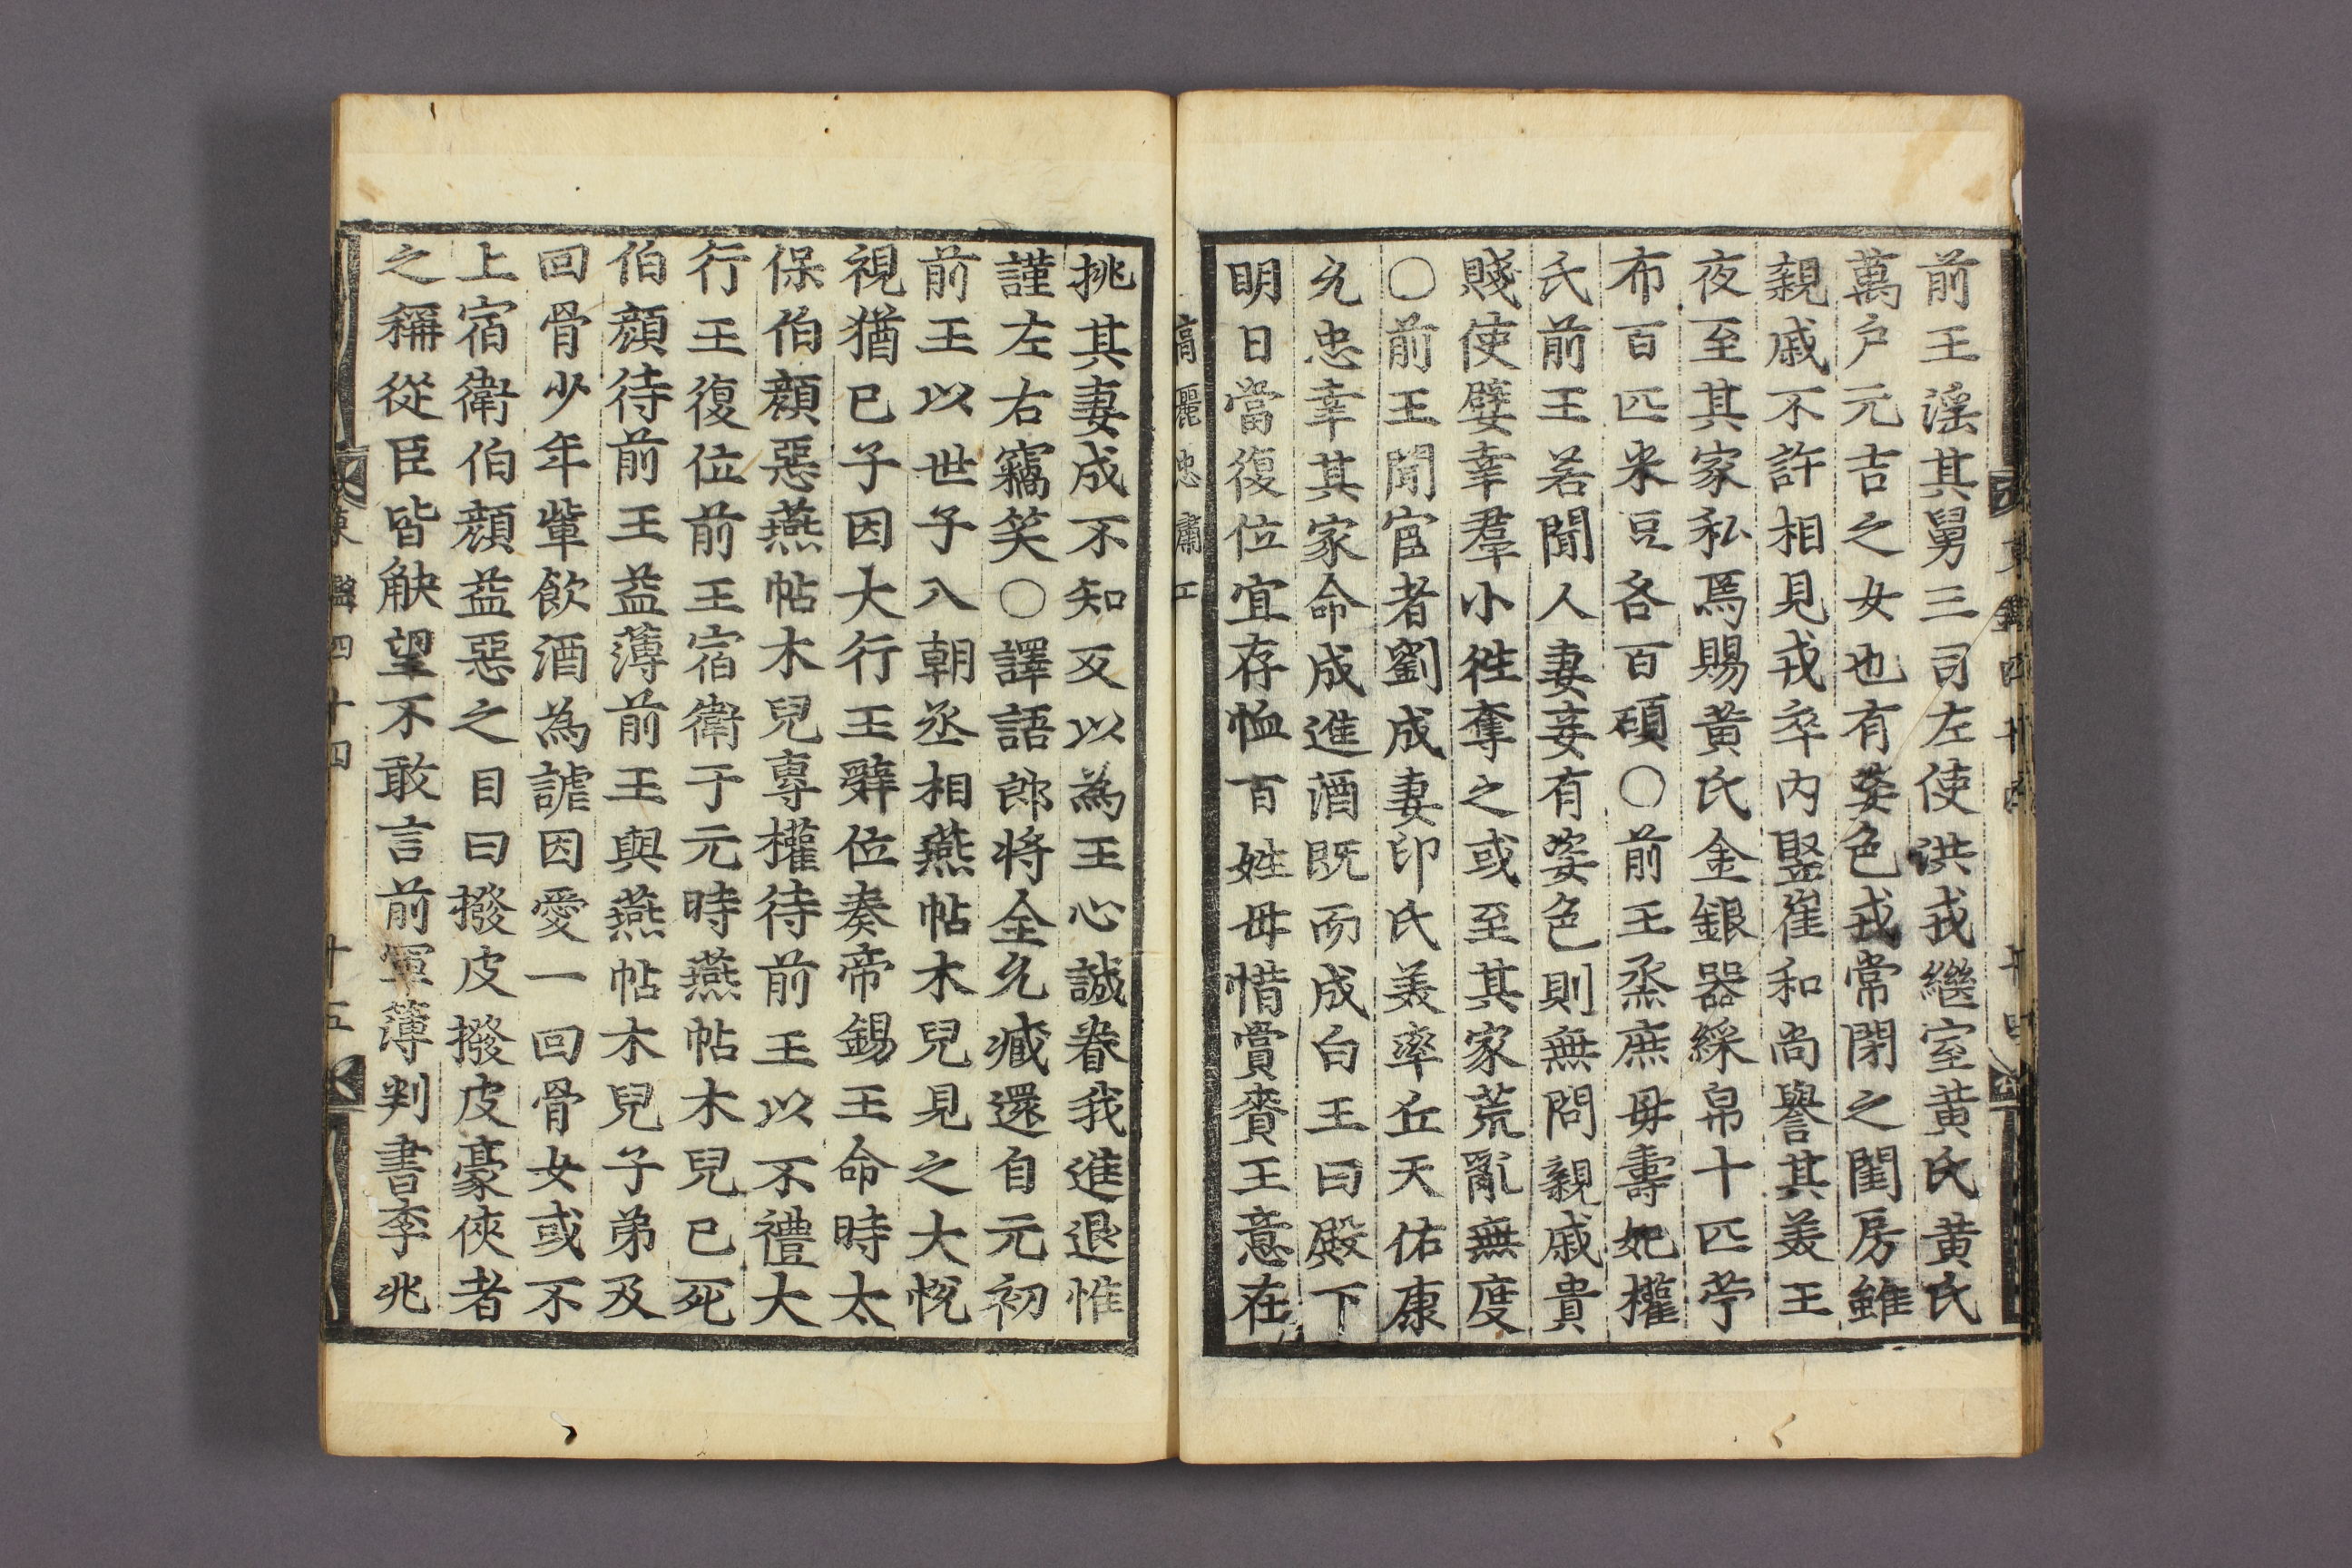 前王淫其舅三司左使洪戎繼室黃氏黃氏
萬户元吉之女也有姿色戎常閉之閨房雖
親戚不許相見戎卒内竪崔和尚譽其美王
夜至其家私焉賜黃氏金銀器綵帛十匹苧
布百匹米豆各百碩○前王烝庶母壽妃權
氏前王若聞人妻妾有姿色則無問親戚貴
賤使嬖幸群小徃奪之或至其家荒亂無度
○前王聞宦者劉成妻印氏美率丘天佑康
允忠幸其家命成進酒旣而成白王曰殿下
明日當復位宜存恤百姓毋惜賞賚王意在
高麗忠肅王
挑其妻成不知又以為王心誠眷我進退惟
謹左右竊笑○譯語郎將全允臧還自元初
前王以世子入朝丞相燕帖木兒見之大悅
視猶已子因大行王辭位奏帝錫王命時太
保伯顔惡燕帖木兒專權待前王以不禮大
行王復位前王宿衛于元時燕帖木兒已死
伯顔待前王益薄前王與燕帖木兒子弟及
回骨少年軰飲酒為謔因愛一回骨女或不
上宿衛伯顔益惡之目曰撥皮撥皮豪俠者
之稱從臣皆觖望不敢言前軍簿判書李兆
東鑑四十四 十五